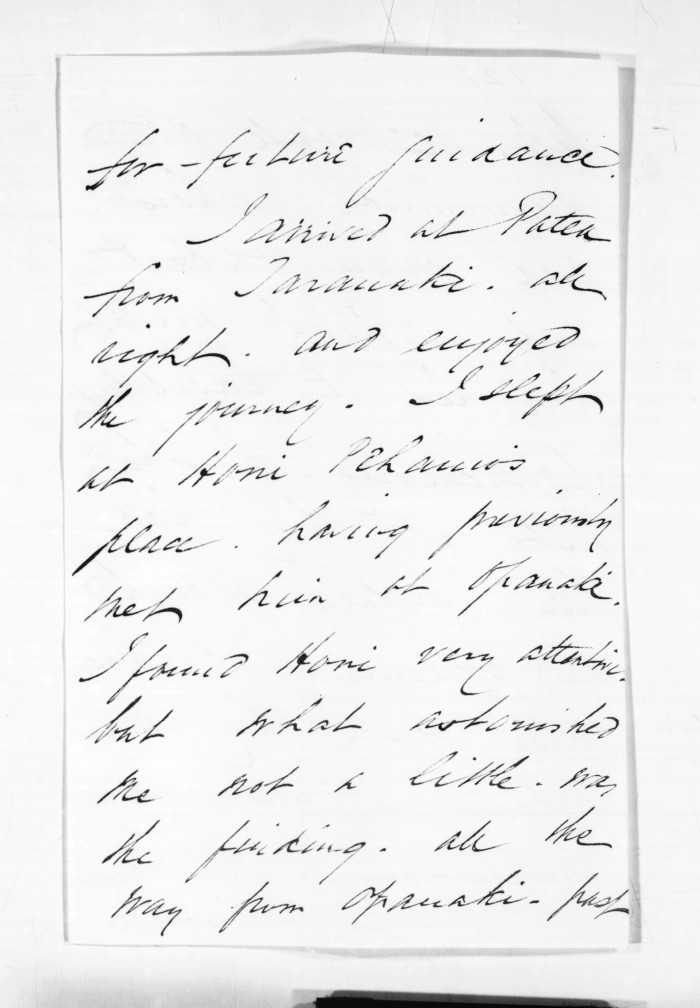 for future guidance.
I arrived at Patea
from Taranaki. all
right. and enjoyed
the journey. I slept
at Honi Pihamas
place. having previously
met him at Opanaki.
I found Honi very attentive.
but what astonished
me not a little. was
the finding. all the
way from Opanaki. past